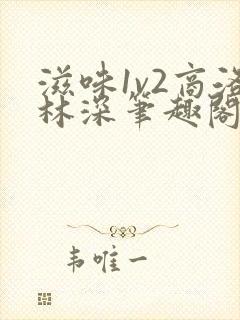 滋味1v2高洛
林深笔趣阁
韦唯一